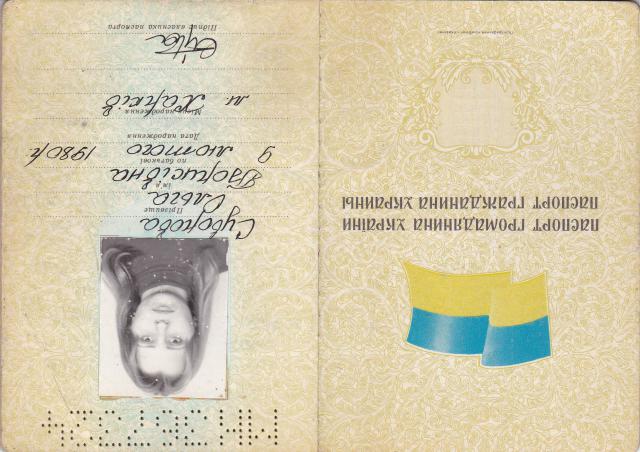 ПАСПОРТ ГРОМАДЯНИНА УКРАЇНИ
ПАСПОРТ ГРАЖДАНИНА УКРАИНЫ
Суворова
Прізвище
Ольга
ім'я
Борисівна
по батькові
9 лютого 1980 р.
Дата народження
м. Харків
Місце народження
Підпис власника паспорта